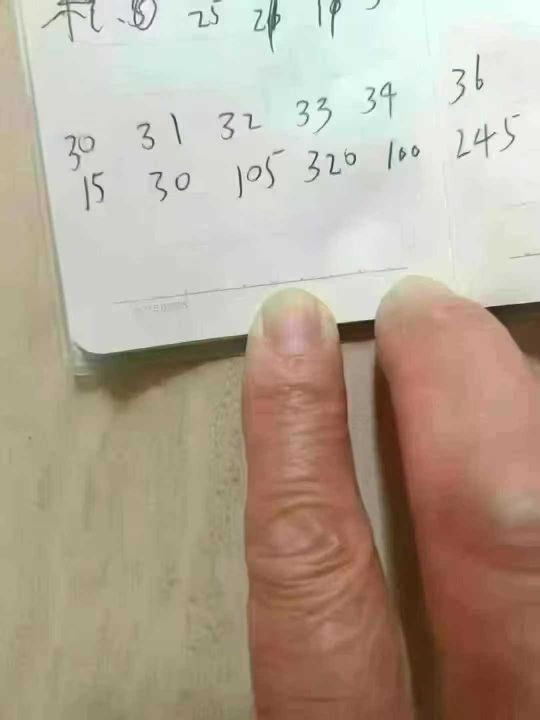 25
30 31 32 33 34 36
15 30 105 320 100 245